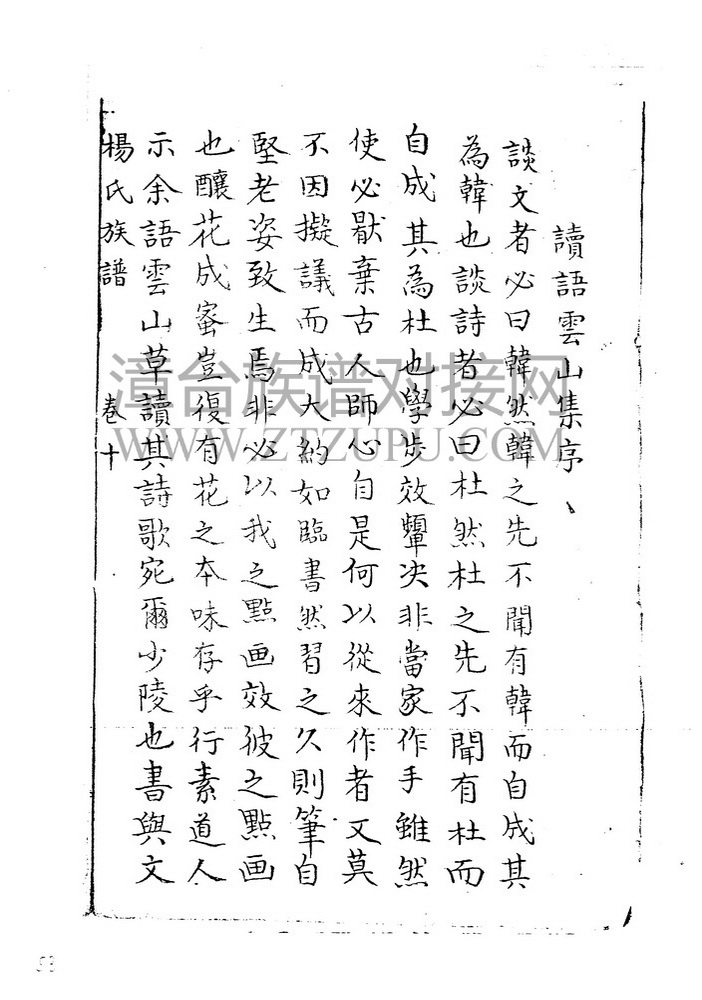 讀語雲山集序、
談文者必曰韓然韓之先不聞有韓而自成其
為韓也談詩者必曰杜然杜之先不聞有杜而
自成其為杜也學步效顰决非當家作手雖然
使必厭棄古人師心自是何以從來作者又莫
不因擬議而成大約如臨書然習之久則筆自
堅老姿致生焉非必以我之點画效彼之點画
也釀花成蜜豈復有花之本味存乎行素道人
示余語雲山草讀其詩歌宛爾少陵也書與文
楊氏族譜 卷十
漳台族谱对接网
WWW.ZTZUPU.COM